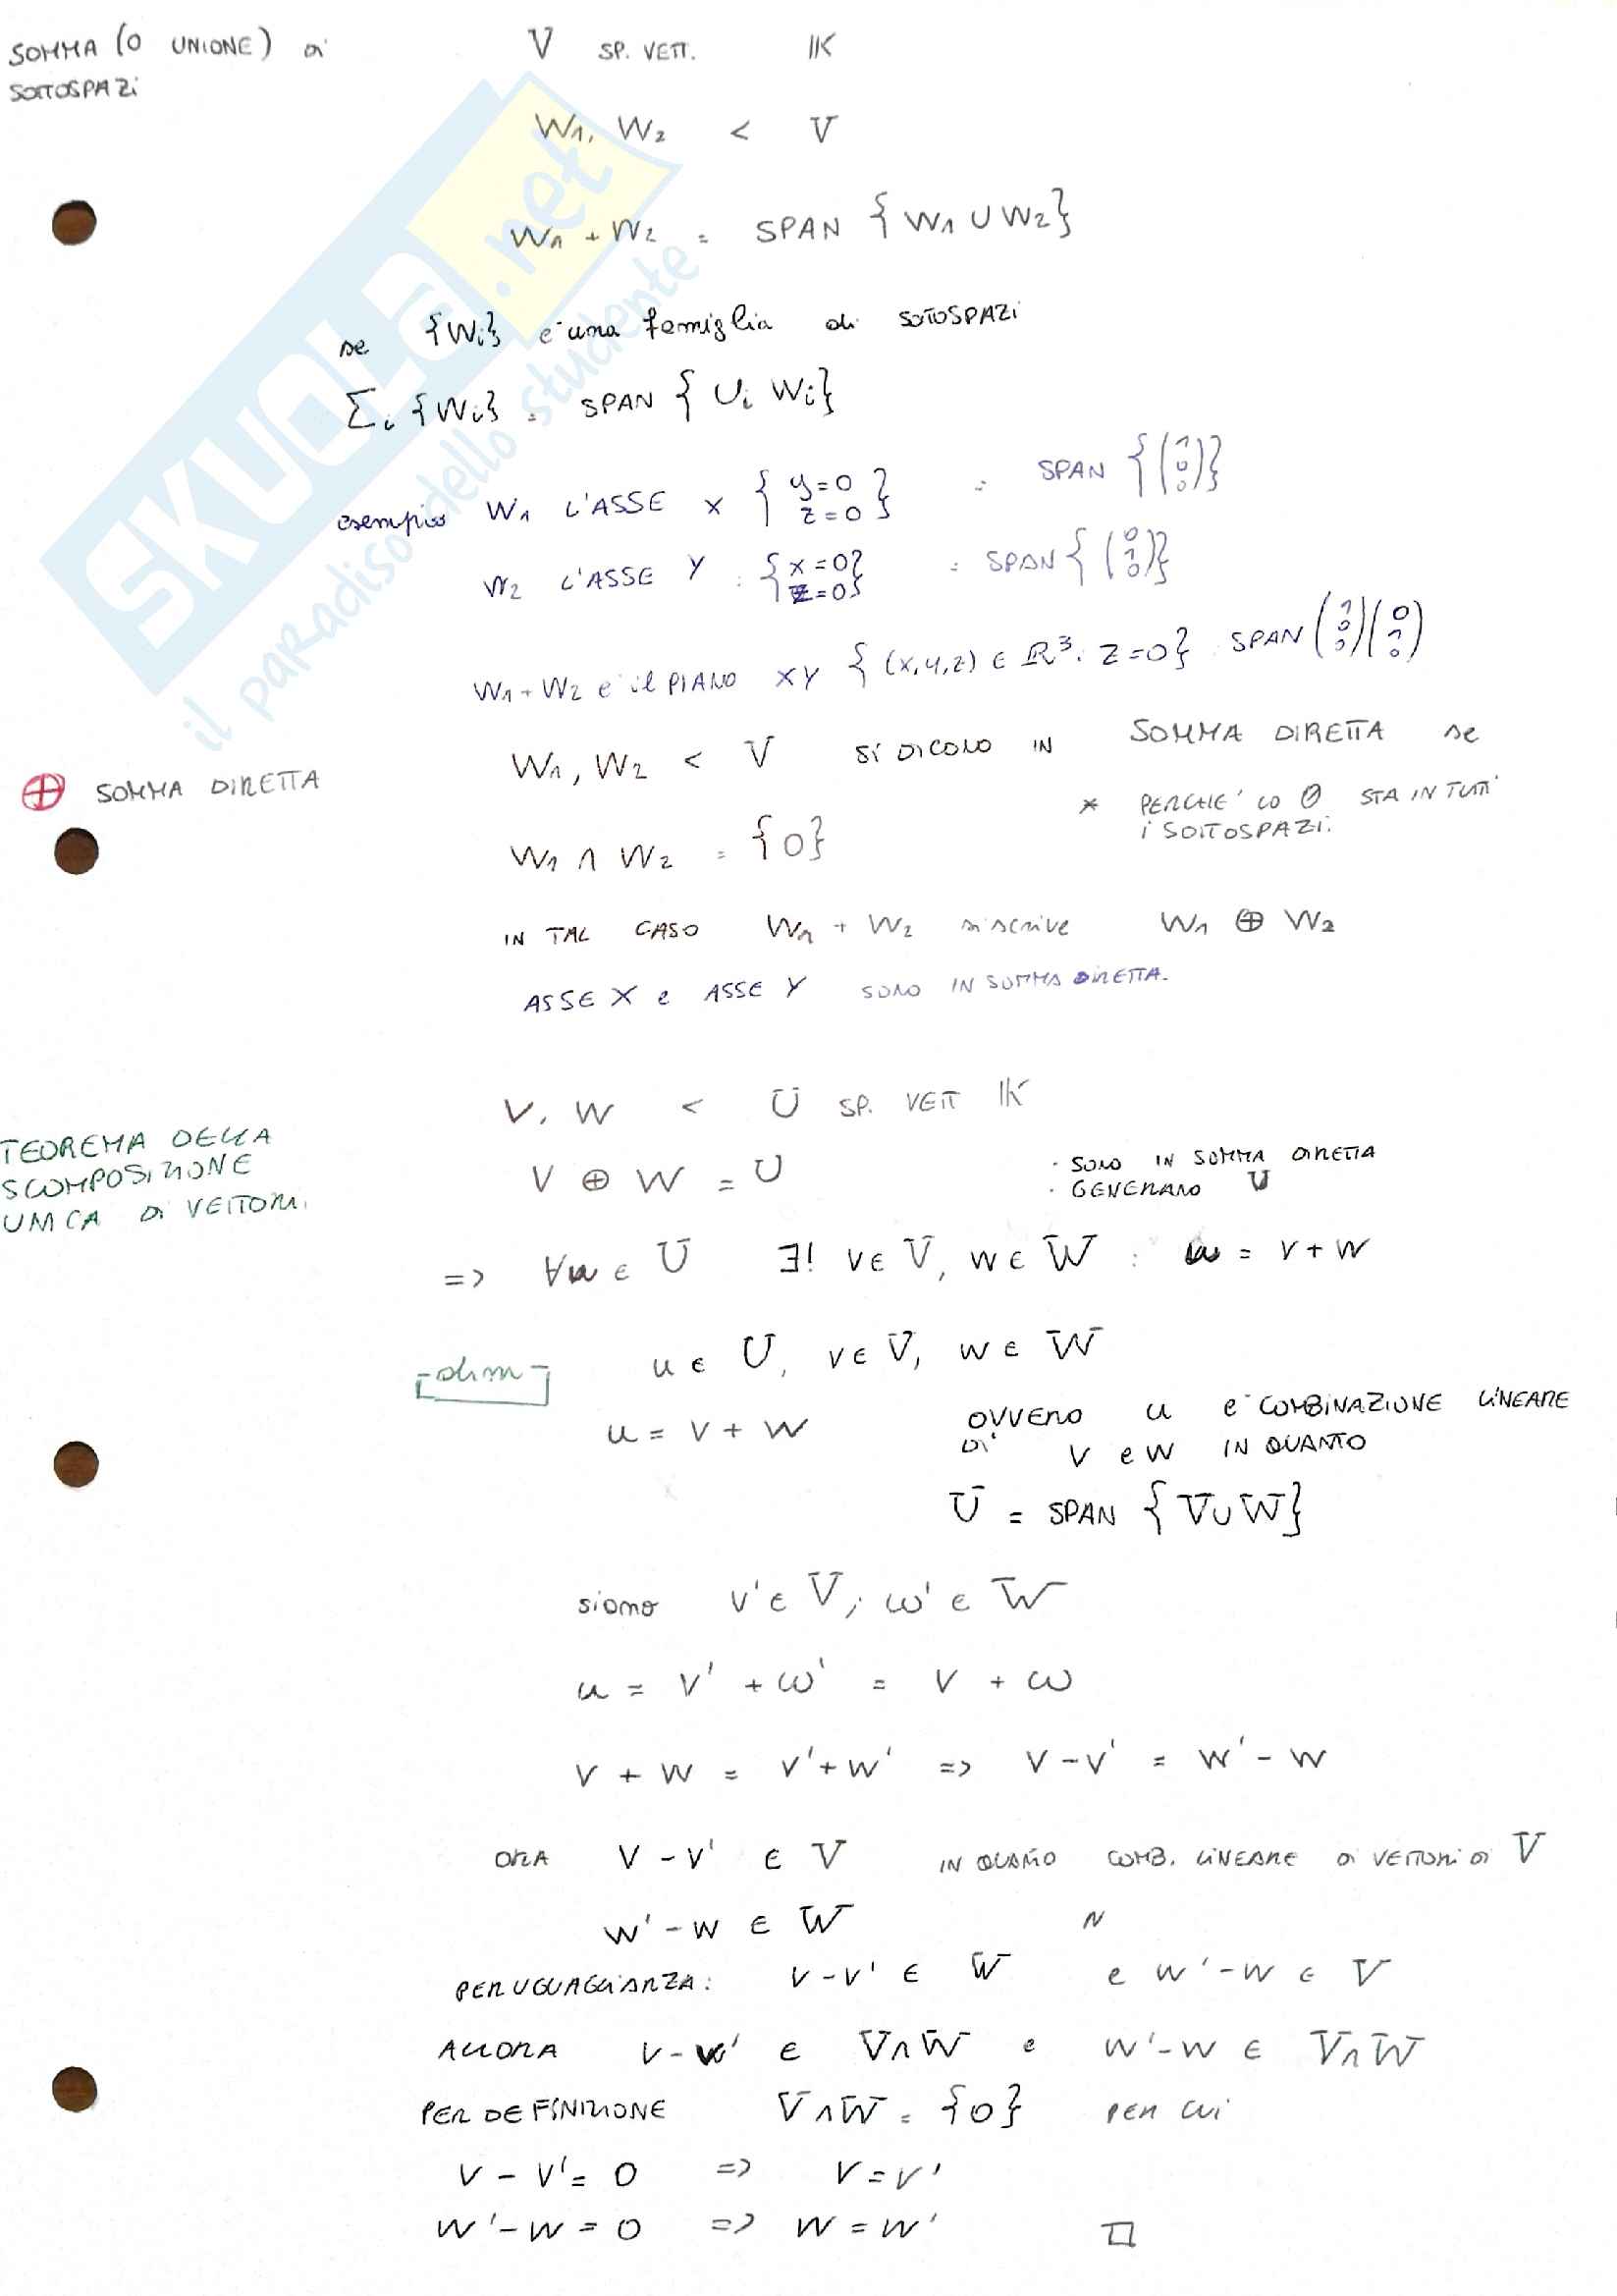 SOMMA (O UNIONE) di V SP. VETT. IK
SOTTOSPAZI
W1, W2 < V
W1 + W2 = SPAN { W1 ∪ W2 }
se {Wi} e' una famiglia di SOTOSPAZI
Σi {Wi} = SPAN { ∪i Wi }
esempio W1 L'ASSE X { y=0 z=0 } = SPAN { (1 0 0) }
W2 L'ASSE Y : { x=0 z=0 } = SPAN { (0 1 0) }
W1+W2 e' il PIANO XY { (x,y,z) ∈ R³: Z=0 } : SPAN (1 0 0)(0 1 0)
⊕ SOMMA DIRETTA W1, W2 < V SI DICONO IN SOMMA DIRETTA se
* PERCHE' LO 0 STA IN TUTTI
i SOTTOSPAZI.
W1 ∩ W2 = {0}
IN TAL CASO W1 + W2 si scrive W1 ⊕ W2
ASSE X e ASSE Y SONO IN SOMMA DIRETTA.
TEOREMA DELLA
SCOMPOSIZIONE
UNICA DI VETTORI.
V, W < U SP. VETT IK
V ⊕ W = U
· SONO IN SOMMA DIRETTA
· GENERANO U
=> ∀u ∈ U ∃! v ∈ V, w ∈ W : u = v + w
dim u ∈ U, v ∈ V, w ∈ W
u = v + w OVVERO u e' COMBINAZIONE LINEARE
DI v e w IN QUANTO
U = SPAN { V∪W }
siano v' ∈ V, w' ∈ W
u = v' + w' = v + w
v + w = v' + w' => v - v' = w' - w
ORA v - v' ∈ V IN QUANTO COMB. LINEARE DI VETTORI DI V
w' - w ∈ W N
PER UGUAGLIANZA: v - v' ∈ W e w' - w ∈ V
ALLORA v - v' ∈ V∩W e w' - w ∈ V∩W
PER DEFINIZIONE V∩W = {0} PER CUI
v - v' = 0 => v = v'
w' - w = 0 => w = w' □
SKUOLA.net
il paradiso dello studente